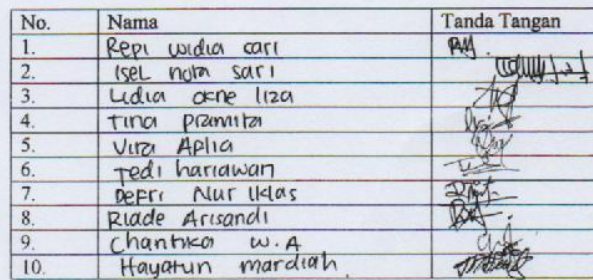 No. Nama Tanda Tangan
1. Repi widia sari
2. Isel nota sari
3. Lidia okne liza
4. Tina pramita
5. Vira Aplia
6. Tedi hariawan
7. Defri Nur Iklas
8. Riade Arisandi
9. Chantika W.A
10. Hayatun mardiah